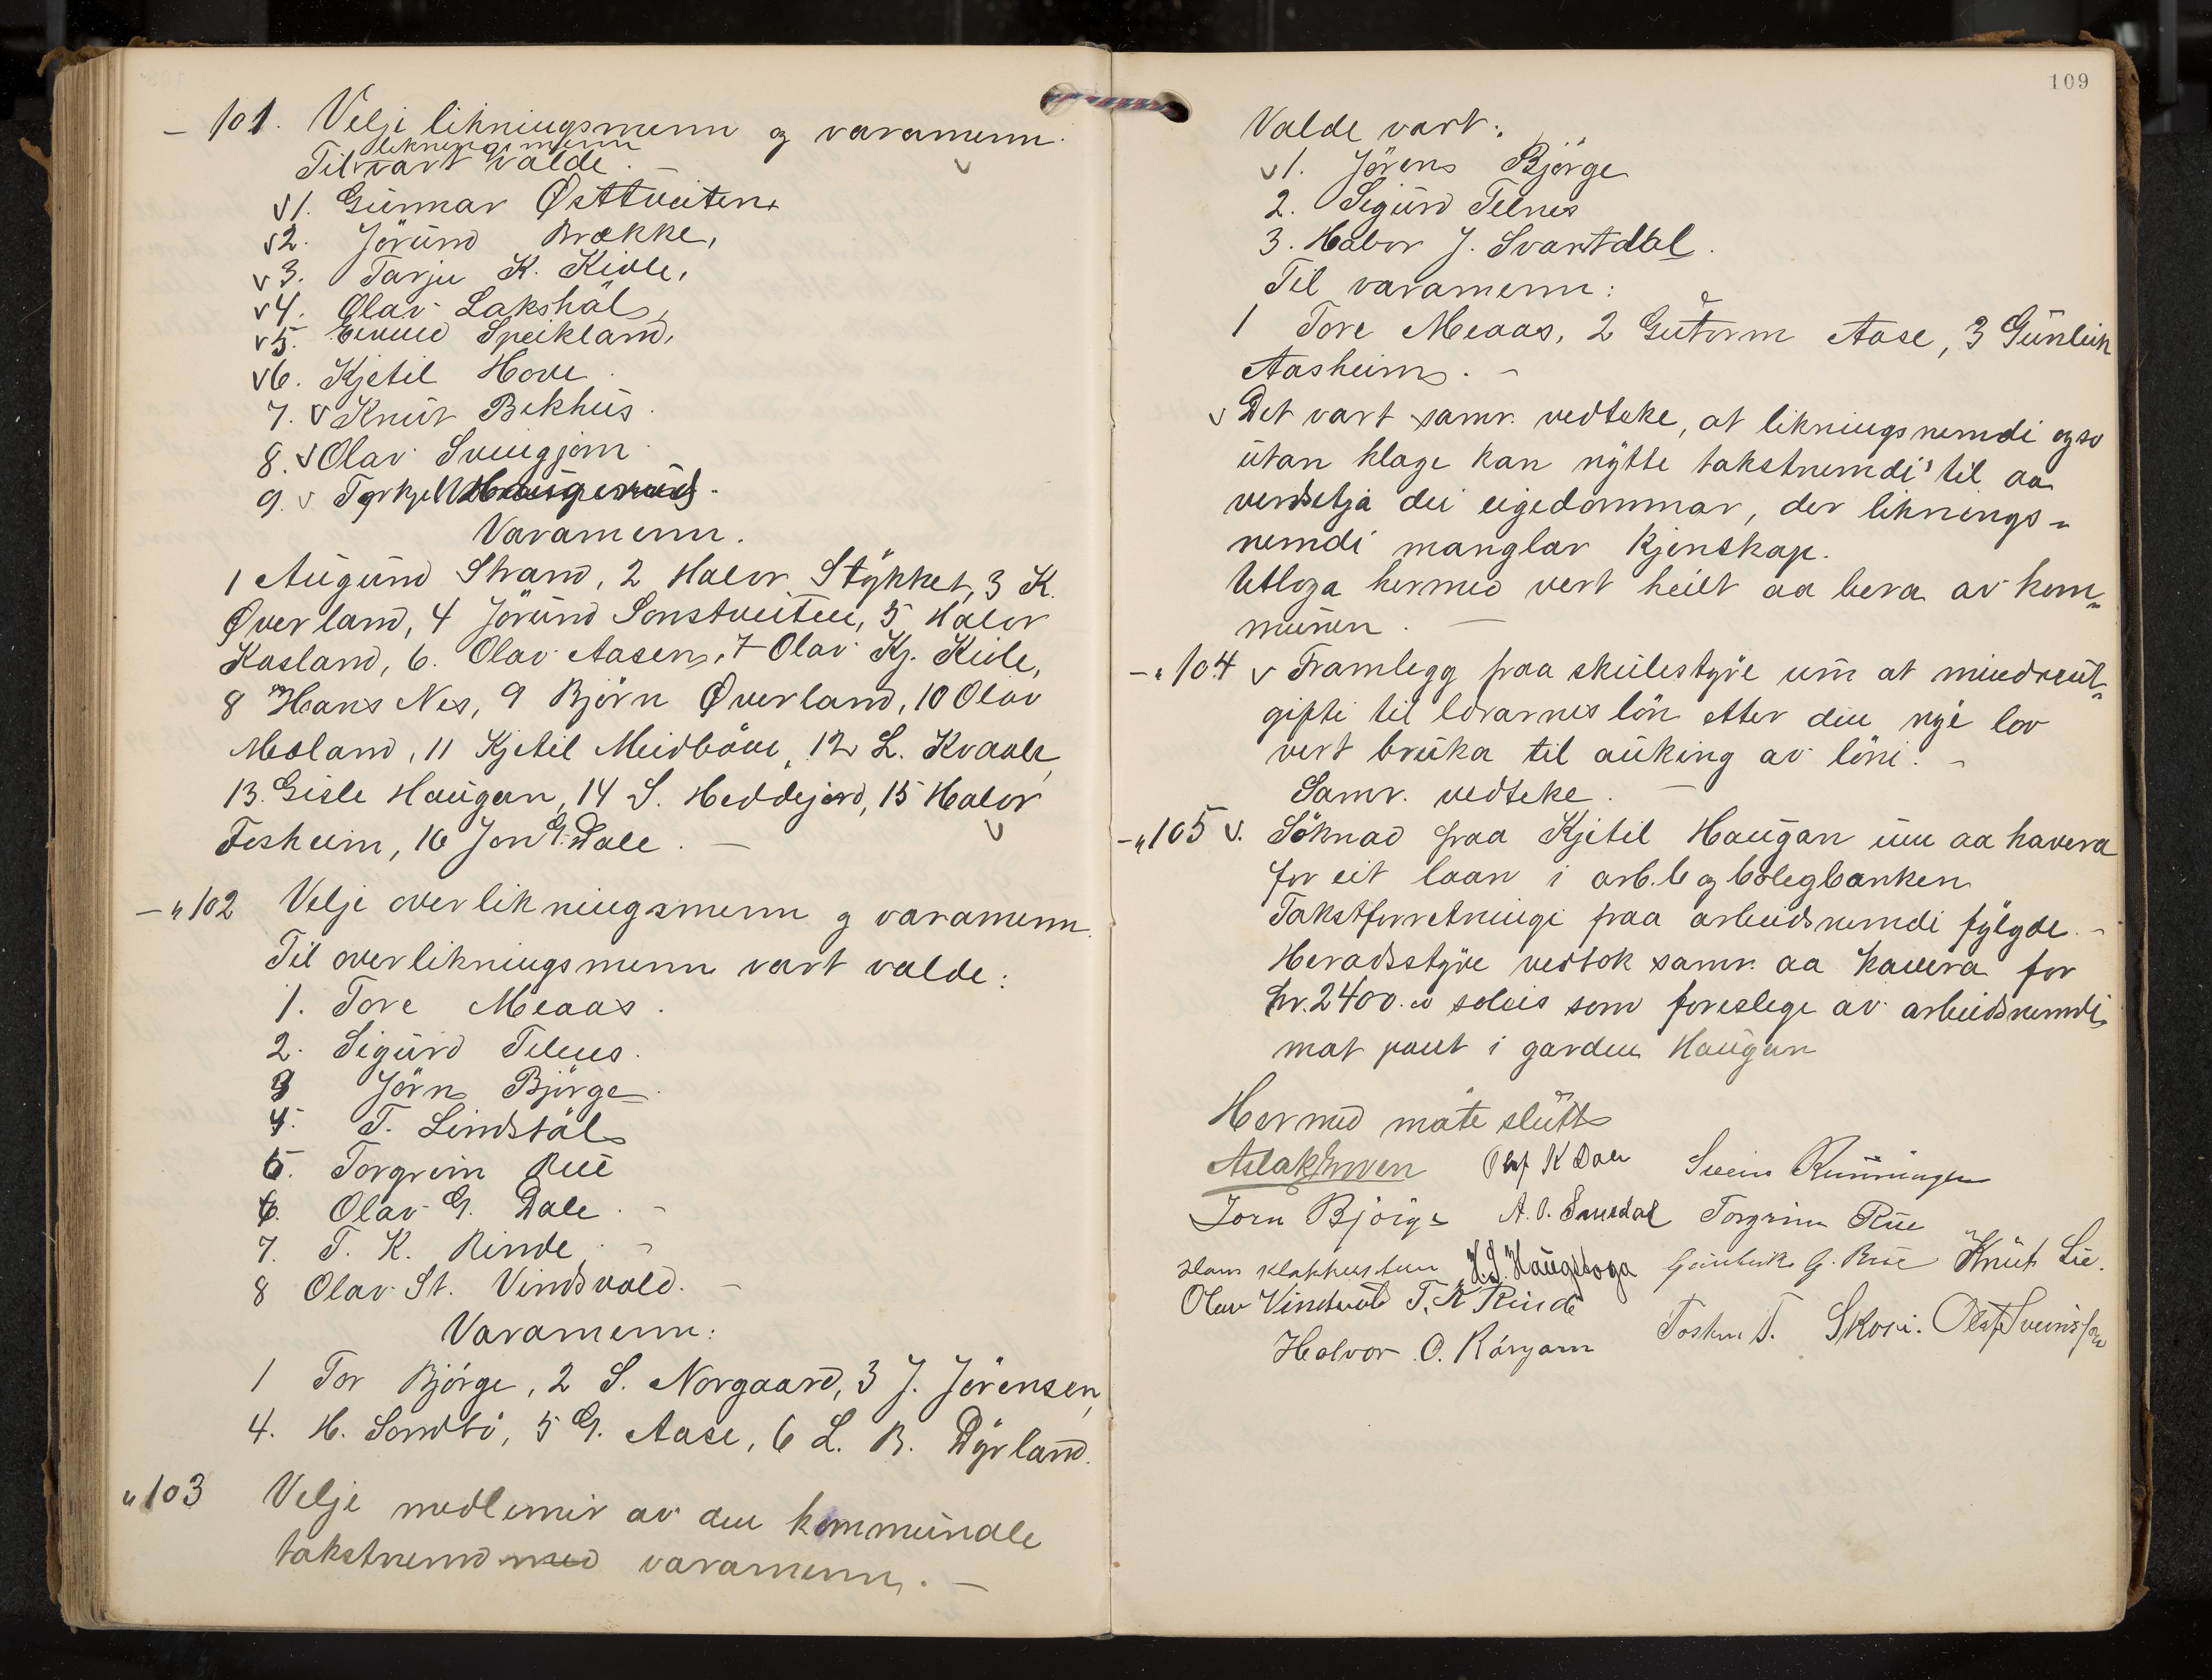 — 101. Velji likningsmenn og varamenn.
likningsmenn
Til vart valde.
v1. Gunnar Østtveiten
v2. Jörund Brække,
v3. Tarju K. Kivle,
v4. Olav Lakshøl,
v5. Speikland,
v6. Kjetil Hove.
7. v Knut Bekhus.
8. v Olav Svingjom
9. v Torkjell Haugerud.
Varamenn.
1 Augund Strand, 2 Halvor Stykket, 3 K.
Øverland, 4 Jörund Sonstveiten, 5 Halvor
Kasland, 6. Olav Aasen, 7 Olav Kj. Kivle,
8 Hans Nes, 9 Björn Øverland, 10 Olav
Mosland, 11 Kjetil Meidböen, 12 L. Kvaale,
13. Gisle Haugan, 14 S. Heddejord, 15 Halvor
Fosheim, 16 Jon G. Dale. —
— „ 102 Velje overlikningsmenn og varamenn.
Til overlikningsmenn vart valde:
1. Tore Meaas.
2. Sigurd Telnes.
3 Jörn Björge.
4. T. Lindstøl
5. Torgrim Rue
6. Olav G. Dale. –
7. T. K. Rinde. –
8 Olav St. Vindsvold. –
Varamenn:
1 Tor Björge, 2 S. Norgaard, 3 J. Jörensen,
4. H. Sondbö, 5 G. Aase, 6 L. B. Dyrland.
„ 103 Velje medlemir av den kommunale
takstnemd med varamenn. —
109
Valde vart:
v1. Jörens Björge
2. Sigurd Telnes
3. Halvor J. Svartdal.
Til varamenn:
1 Tore Meaas, 2 Gutorm Aase, 3 Gunleik
Aasheim. –
v Det vart samr. vedteke, at likningsnemdi ogso
utan klage kan nytte takstnemdi til aa
verdsetja dei eigedommar, der liknings-
nemdi manglar kjenskap.
Utloga hermed vert heilt aa bera av kom-
munen. —
— „ 104 v Framlegg fraa skulestyre um at mindreut-
gifti til lærarnes lön etter den nye lov
vert bruka til auking av löni. –
Samr. vedteke. —
— „ 105 v. Söknad fraa Kjetil Haugan um aa kavera
for eit laan i arb.b og bolegbanken
Takstforretningi fraa arbeidsnemdi fylgde. –
Heradsstyre vedtok samr. aa kavera for
kr. 2400.00 soleis som foreslege av arbeidsnemdi
mot pant i garden Haugan
Hermed möte slutt
Aslak Hoven Olaf K Dale Svein Runningen
Jorn Bjørge A. O. Torgrim Rue
H. J. Haugstoga Gunleik G. Rue Knut Lie.
Olav Vindsvold T. K Rinde
Halvor O. T. Skori. Olaf Sveinsson